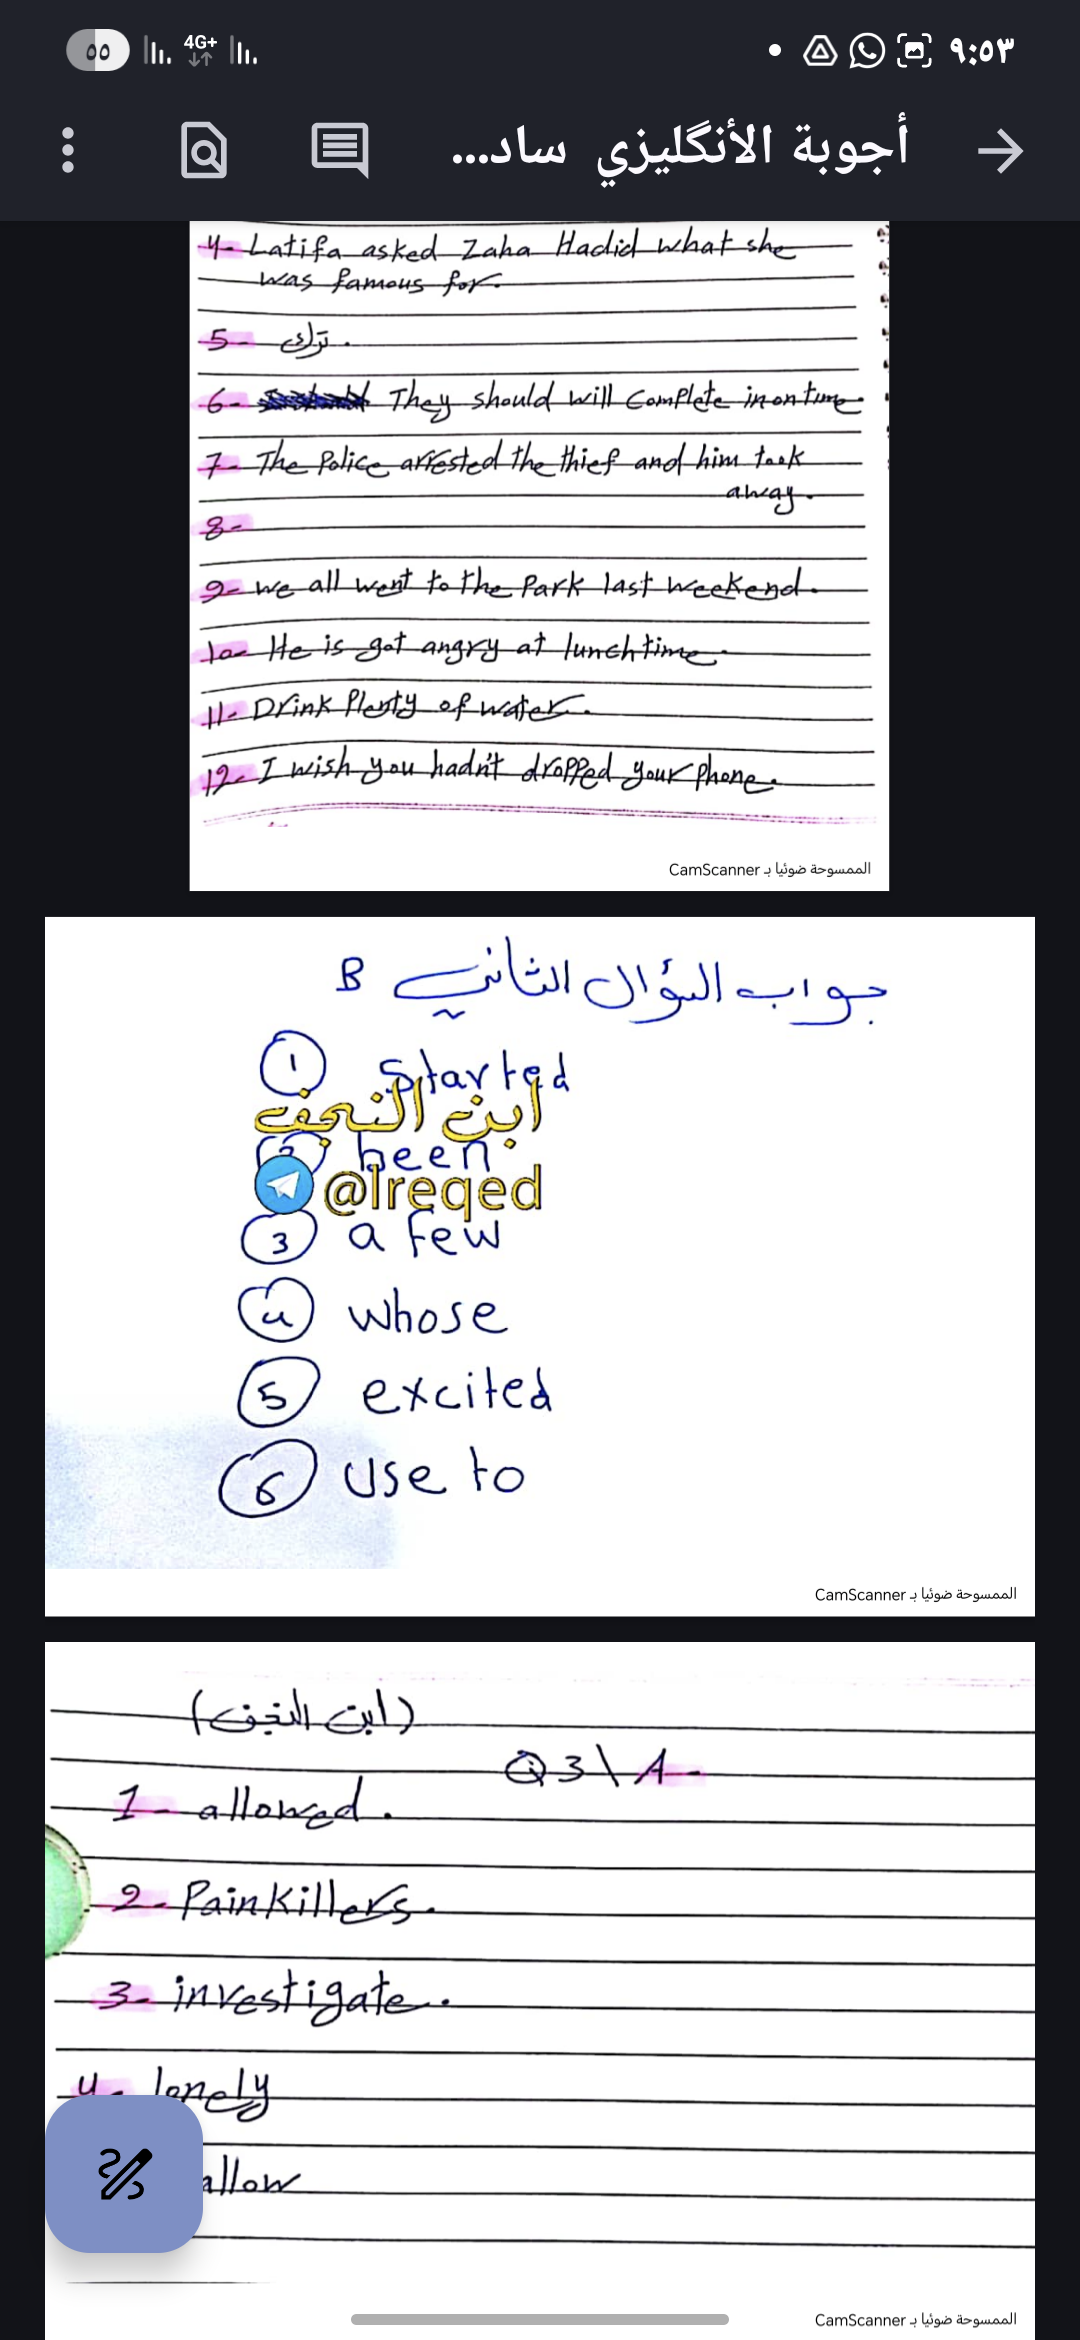 ٥٥ 4G+ ٩:٥٣
أجوبة الأنگليزي ساد...
4- Latifa asked Zaha Hadid what she
was famous for.
5- ترك.
6- They should will complete in on time.
7- The Police arrested the thief and him took
away.
8-
9- we all went to the Park last weekend.
10- He is got angry at lunchtime.
11- Drink Plenty of water.
12- I wish you hadn't dropped your phone.
الممسوحة ضوئيا بـ CamScanner
جواب السؤال الثاني B
1 Started
ابن النجف
2 been
@lreqed
3 a few
4 whose
5 excited
6 use to
الممسوحة ضوئيا بـ CamScanner
(ابن النجف)
Q3\A-
1- allowed.
2- Painkillers.
3- investigate.
4- lonely
allow
الممسوحة ضوئيا بـ CamScanner